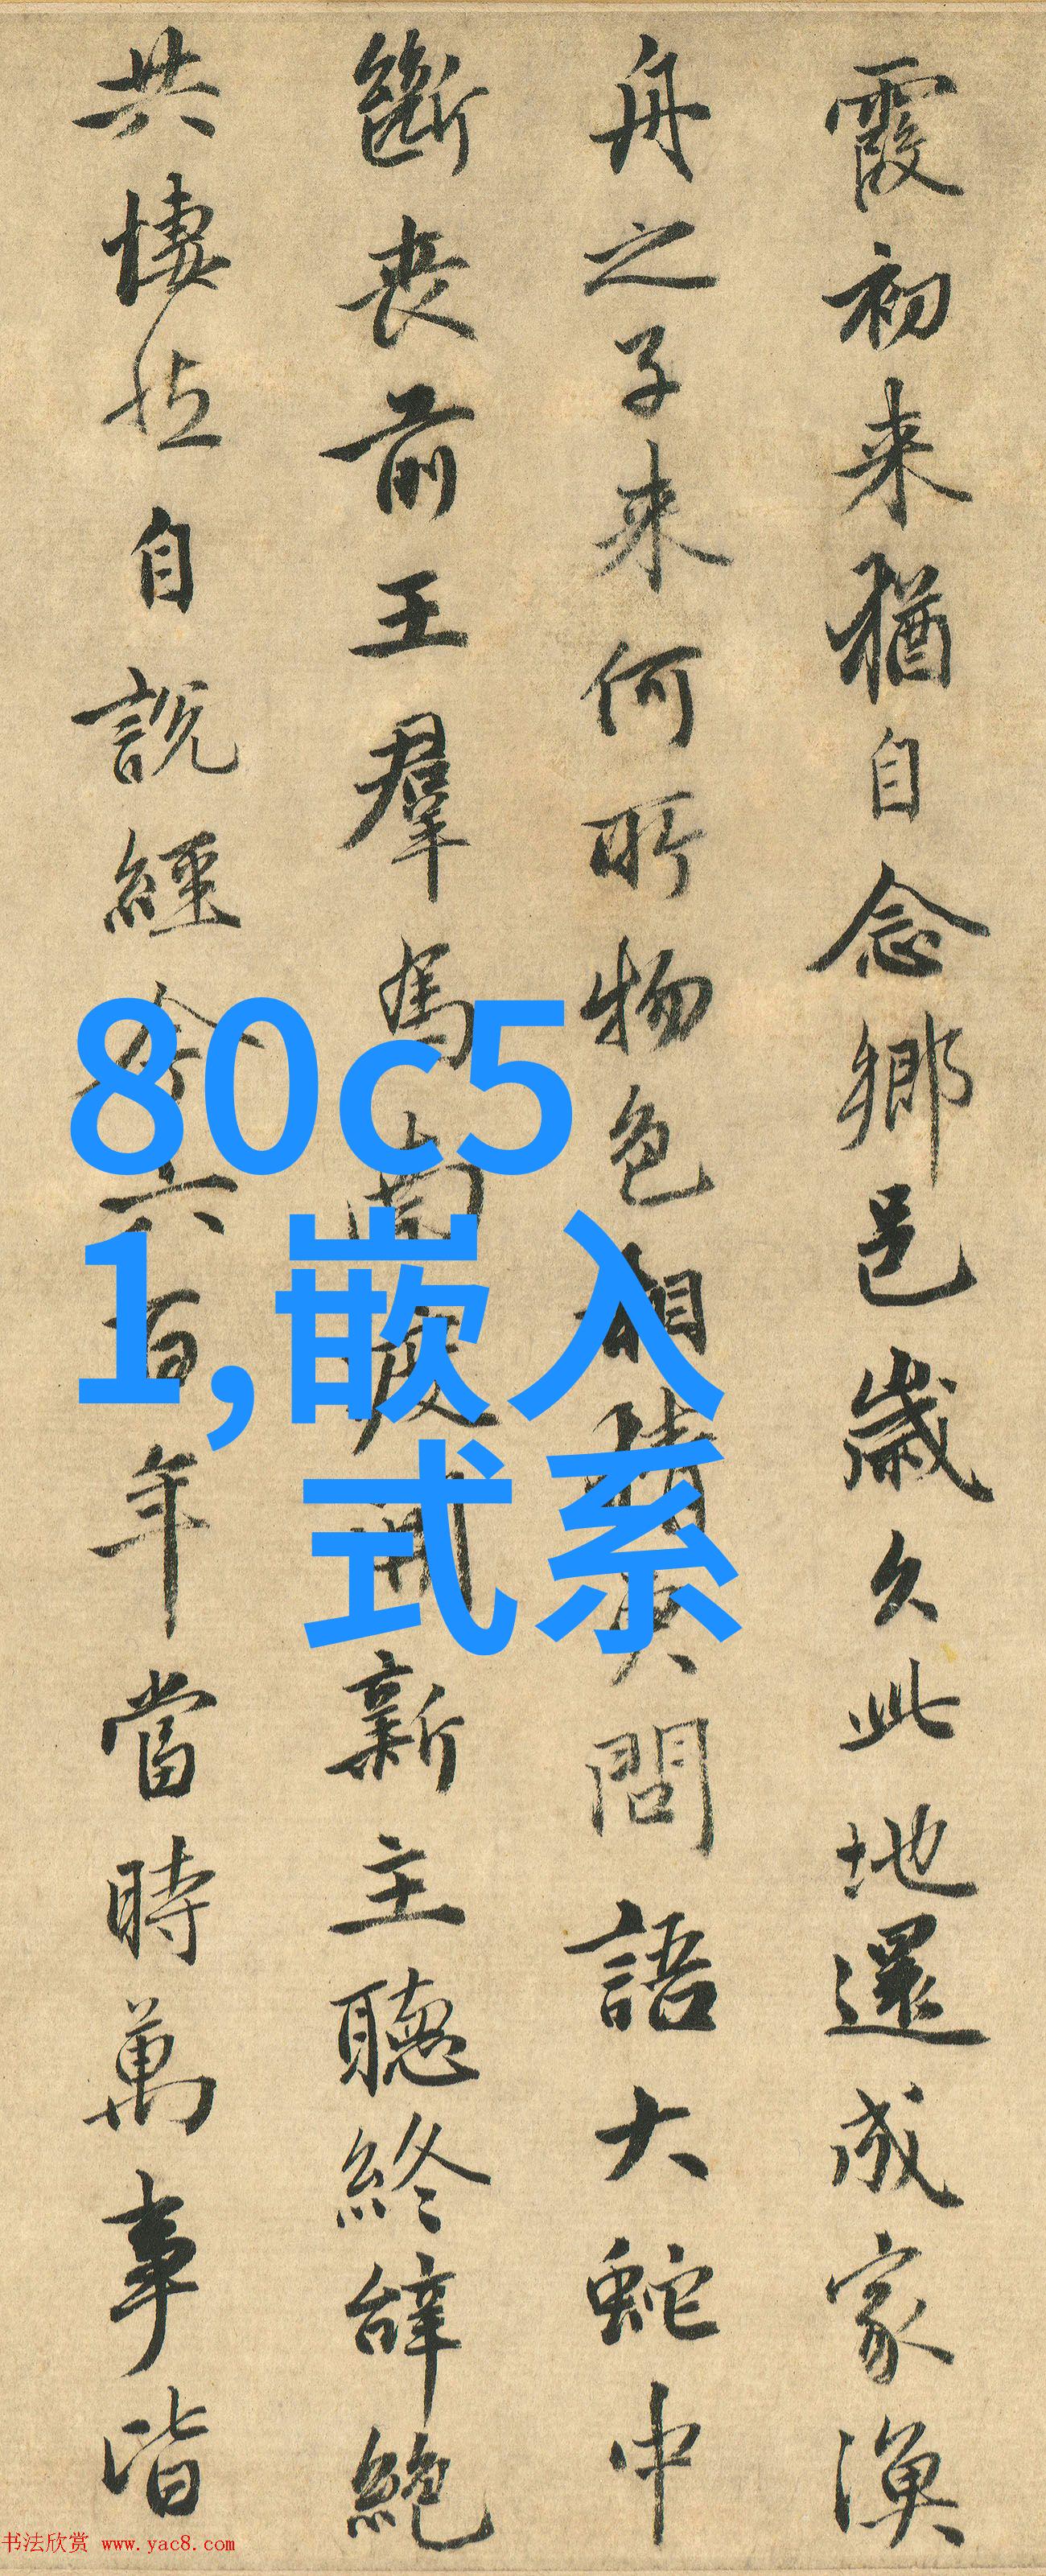 霞初来猶自念鄉邑歲久此地還成家漁
舟之子来何所物色相猜更問語大蛇中
斷喪前王羣馬南渡開新主聽終辭絕
共悽然自說經今六百年當時萬事皆
80c5
1,嵌入
式系
书法欣赏 www.yac8.com